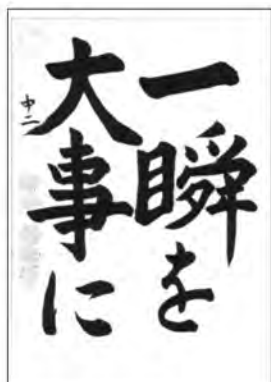 一瞬を
大事に
中二